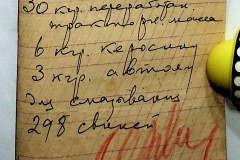 30 кгр. переработан.
тракторн. масла
6 кгр. керосину
3 кгр. автол
Для смазывания
298 свиней